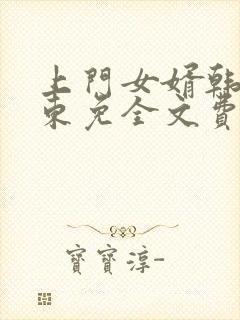 上門女婿韩
東免全文費
寶寶淳-